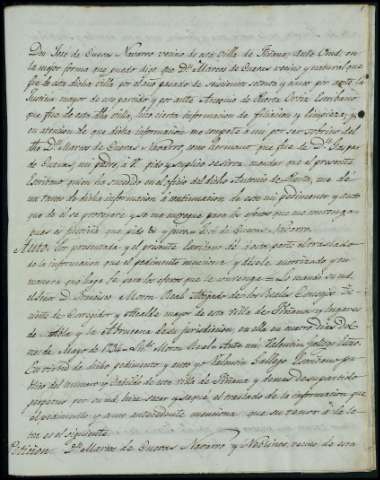 Don Jose de Cuevas Navarro vecino de esta villa de Fiñana, ante Vmd. en
la mejor forma que puedo digo que Dn. Marcos de Cuevas vecino y natural que
fue de esta dicha villa por el año pasado de seiscientos setenta y cinco por ante la
Justicia mayor de su partido y por ante Antonio de Huerta Escribano
que fue de esta dha villa, hizo cierta información de filiacion y limpieza; y
en atencion de que dicha informacion me compete a mi por ser sobrino del
dho Dn. Marcos de Cuevas y Navarro, como hermano que fue de Dn. Gaspar
de Cuevas, mi padre; a V. pido y suplico se sirva mandar que el presente
Escribano quien ha sucedido en el oficio del dicho Antonio de Huerta, me dé
un tanto de dicha informacion a continuacion de este mi pedimento y auto
que de el se proveyere y se me entregue para los efectos que me convengan
pues es justicia que pido &a y juro = Jose de Cuevas Navarro.
Auto. Por presentada y el presente Escribano dé a esta parte el traslado
de la informacion que el pedimento menciona y désele autorizado y en
manera que haga fe para los efectos que le convenga = Lo mandó su md.
el Señor D. Moron Real Abogado de los Reales Consejos Te-
niente de Corregidor y Alcalde mayor de esta villa de Fiñana y lugares
de Abla y la Abrucena de su jurisdicion, en ella en cuatro dias del
mes de Mayo de 1734 = Moron Real = Ante mi, Valentin Gallego
En virtud de dicho pedimento y auto yo Valentin Gallego Escribano pu-
blico del numero y Cabildo de esta villa de Fiñana y demas de su partido
perpetuo por su md. hice sacar y saqué, el traslado de la informacion que
el pedimento y auto antecedente menciona que su tenor á la le-
tra es el siguiente
Peticion. Dn. Marcos de Cuevas Navarro y vecino de esta